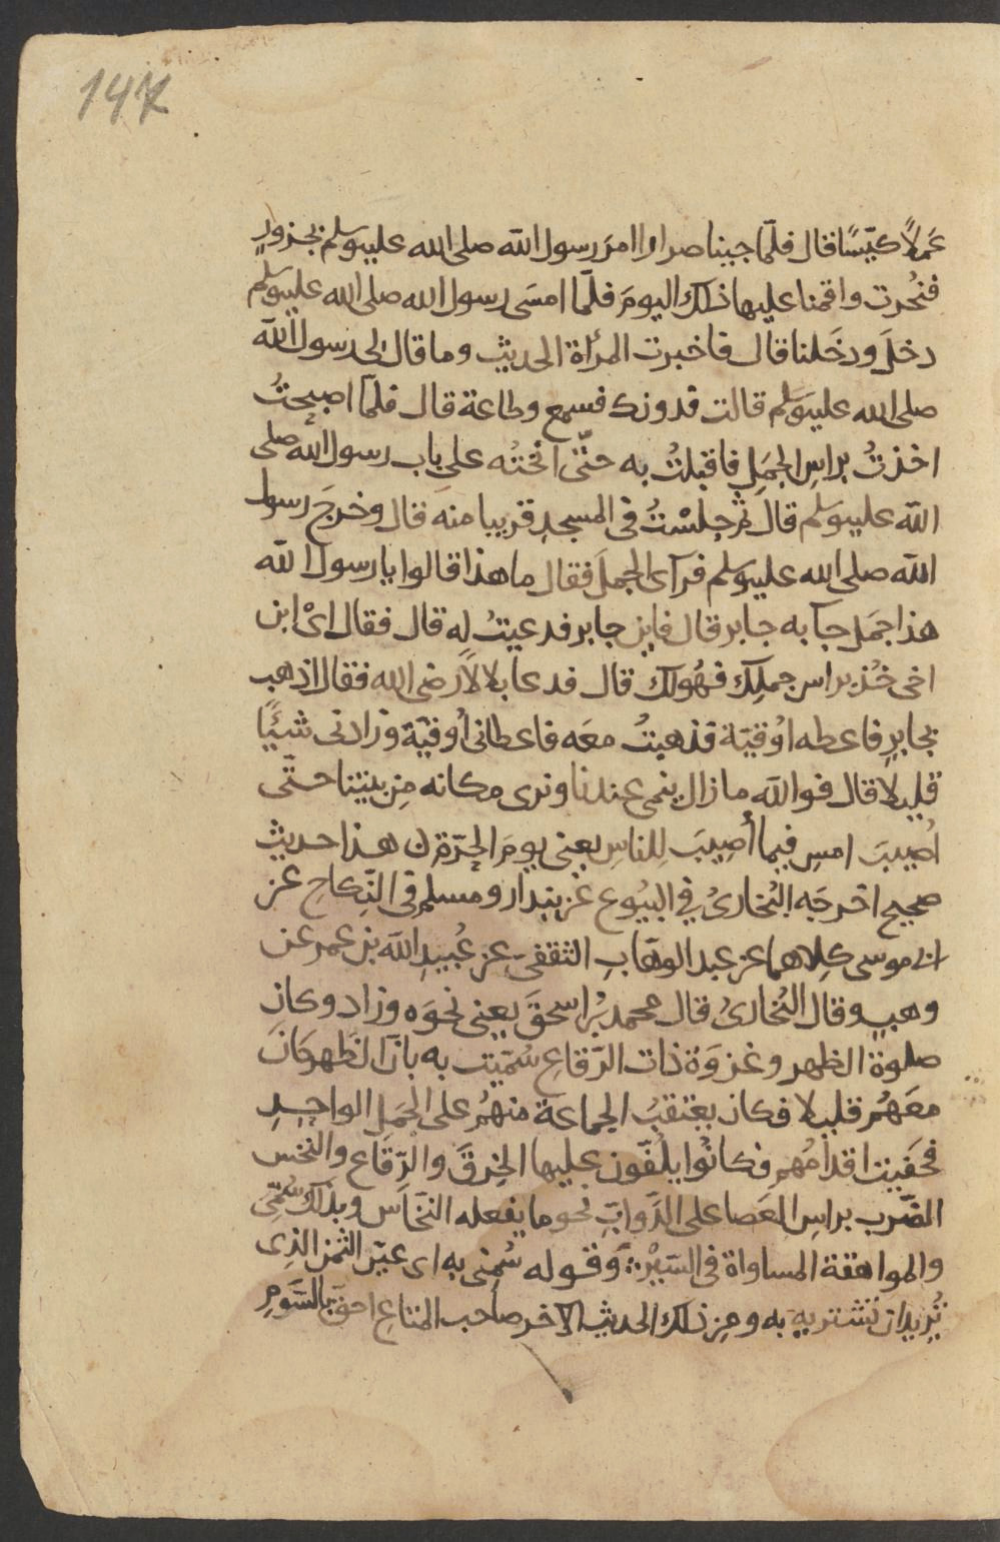 147
عَمَلاً كيّسًا قال فلمّا جينا صرارا امرَ رسول الله صلى الله عليه وسلم بجزورٍ
فنُحرت واقمنا عليها ذلك اليومَ فلمّا امسَى رسول الله صلى الله عليه وسلم
دخلَ ودخَلنا قال فاخبرت المرأة الحديث وما قال لى رسول الله
صلى الله عليه وسلم قالت فدونك فسمع وطاعة قال فلمّا اصبحتُ
اخذتُ براسِ الجمَلِ فاقبلتُ به حتّى انختُه على باب رسول الله صلى
الله عليه وسلم قال ثم جلسْتُ فى المسجدِ قريبا منه قال وخرجَ رسول
الله صلى الله عليه وسلم فرآى الجملَ فقال ما هذا قالوا يا رسول الله
هذا جمَل جآ به جابر قال فاين جابر فدعيتُ له قال فقال اىْ ابن
اخى خُذ براسِ جملِك فهُولك قال فدعا بلالاً رضى الله فقال اذهب
بجابرٍ فاعطه اوُقيّة فذهبتُ معَه فاعطانى أوقيّة وزادنى شيئًا
قليلا قال فوالله ما زال ينمى عندنا ونرى مكانه مِن بيتنا حتّى
أُصيبَ امسِ فيما أُصِيبَ لِلناسِ يعنى يومَ الحَرّةِ هذا حديث
صحيح اخرجَه البُخارىُ فى البيُوع عن بندار ومسلم فى النِكاحِ عن
ابى موسى كِلاهما عن عبد الوهّابِ الثقفىِّ عن عُبيدِ الله بن عمر عن
وهبٍ وقال البُخارىُ قال محمد بْن اسحقَ يعنى نحوَه وزاد وكان
صلوة الظهر وغزوَة ذات الرّقاعِ سُمّيت به بانّ الظهر كانَ
معَهُم قليلا فكان يعتقبُ الجماعَة منهُم على الجمَلِ الواحِدِ
فحَفِيت اقدامُهم فكانُوا يلُفّون عليها الخِرقَ والرِّقَاع والنخس
الضّرب براسِ العَصا على الدَّوابّ نحو ما يفعله النّخّاس وبذلك سُمّىَ
والمواهقة المساواة فى السَيْرِ وقوله سُمْنِى به اى عيّن الثمن الذِى
تُرِيد ان تشتريه به ومِن ذلك الحديث الاخر صاحب المتاعِ احقّ بالسّومِ